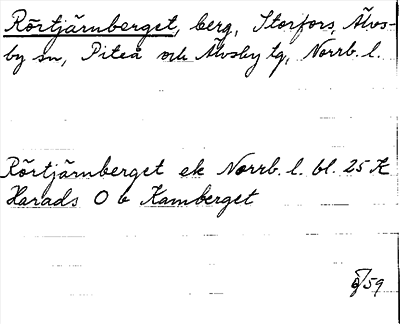 Rörtjärnberget, berg, Storfors, Älvs-
by sn, Piteå och Älvsby tg, Norrb. l.
Rörtjärnberget ek Norrb. l. bl. 25 K
Harads O b Kamberget
/59